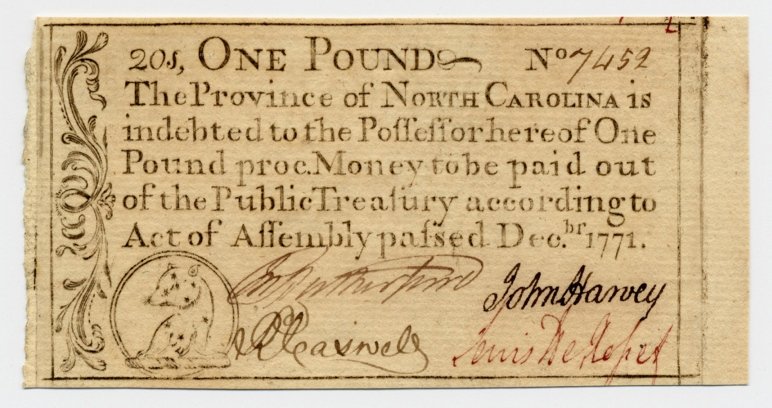 20s, ONE POUND No 7452
The Province of NORTH CAROLINA is
indebted to the Poſſeſſor hereof One
Pound proc. Money to be paid out
of the Public Treaſury according to
Act of Aſſembly paſsed Dec.br 1771.
John Harvey
R Caswell
Lewis De Roſset